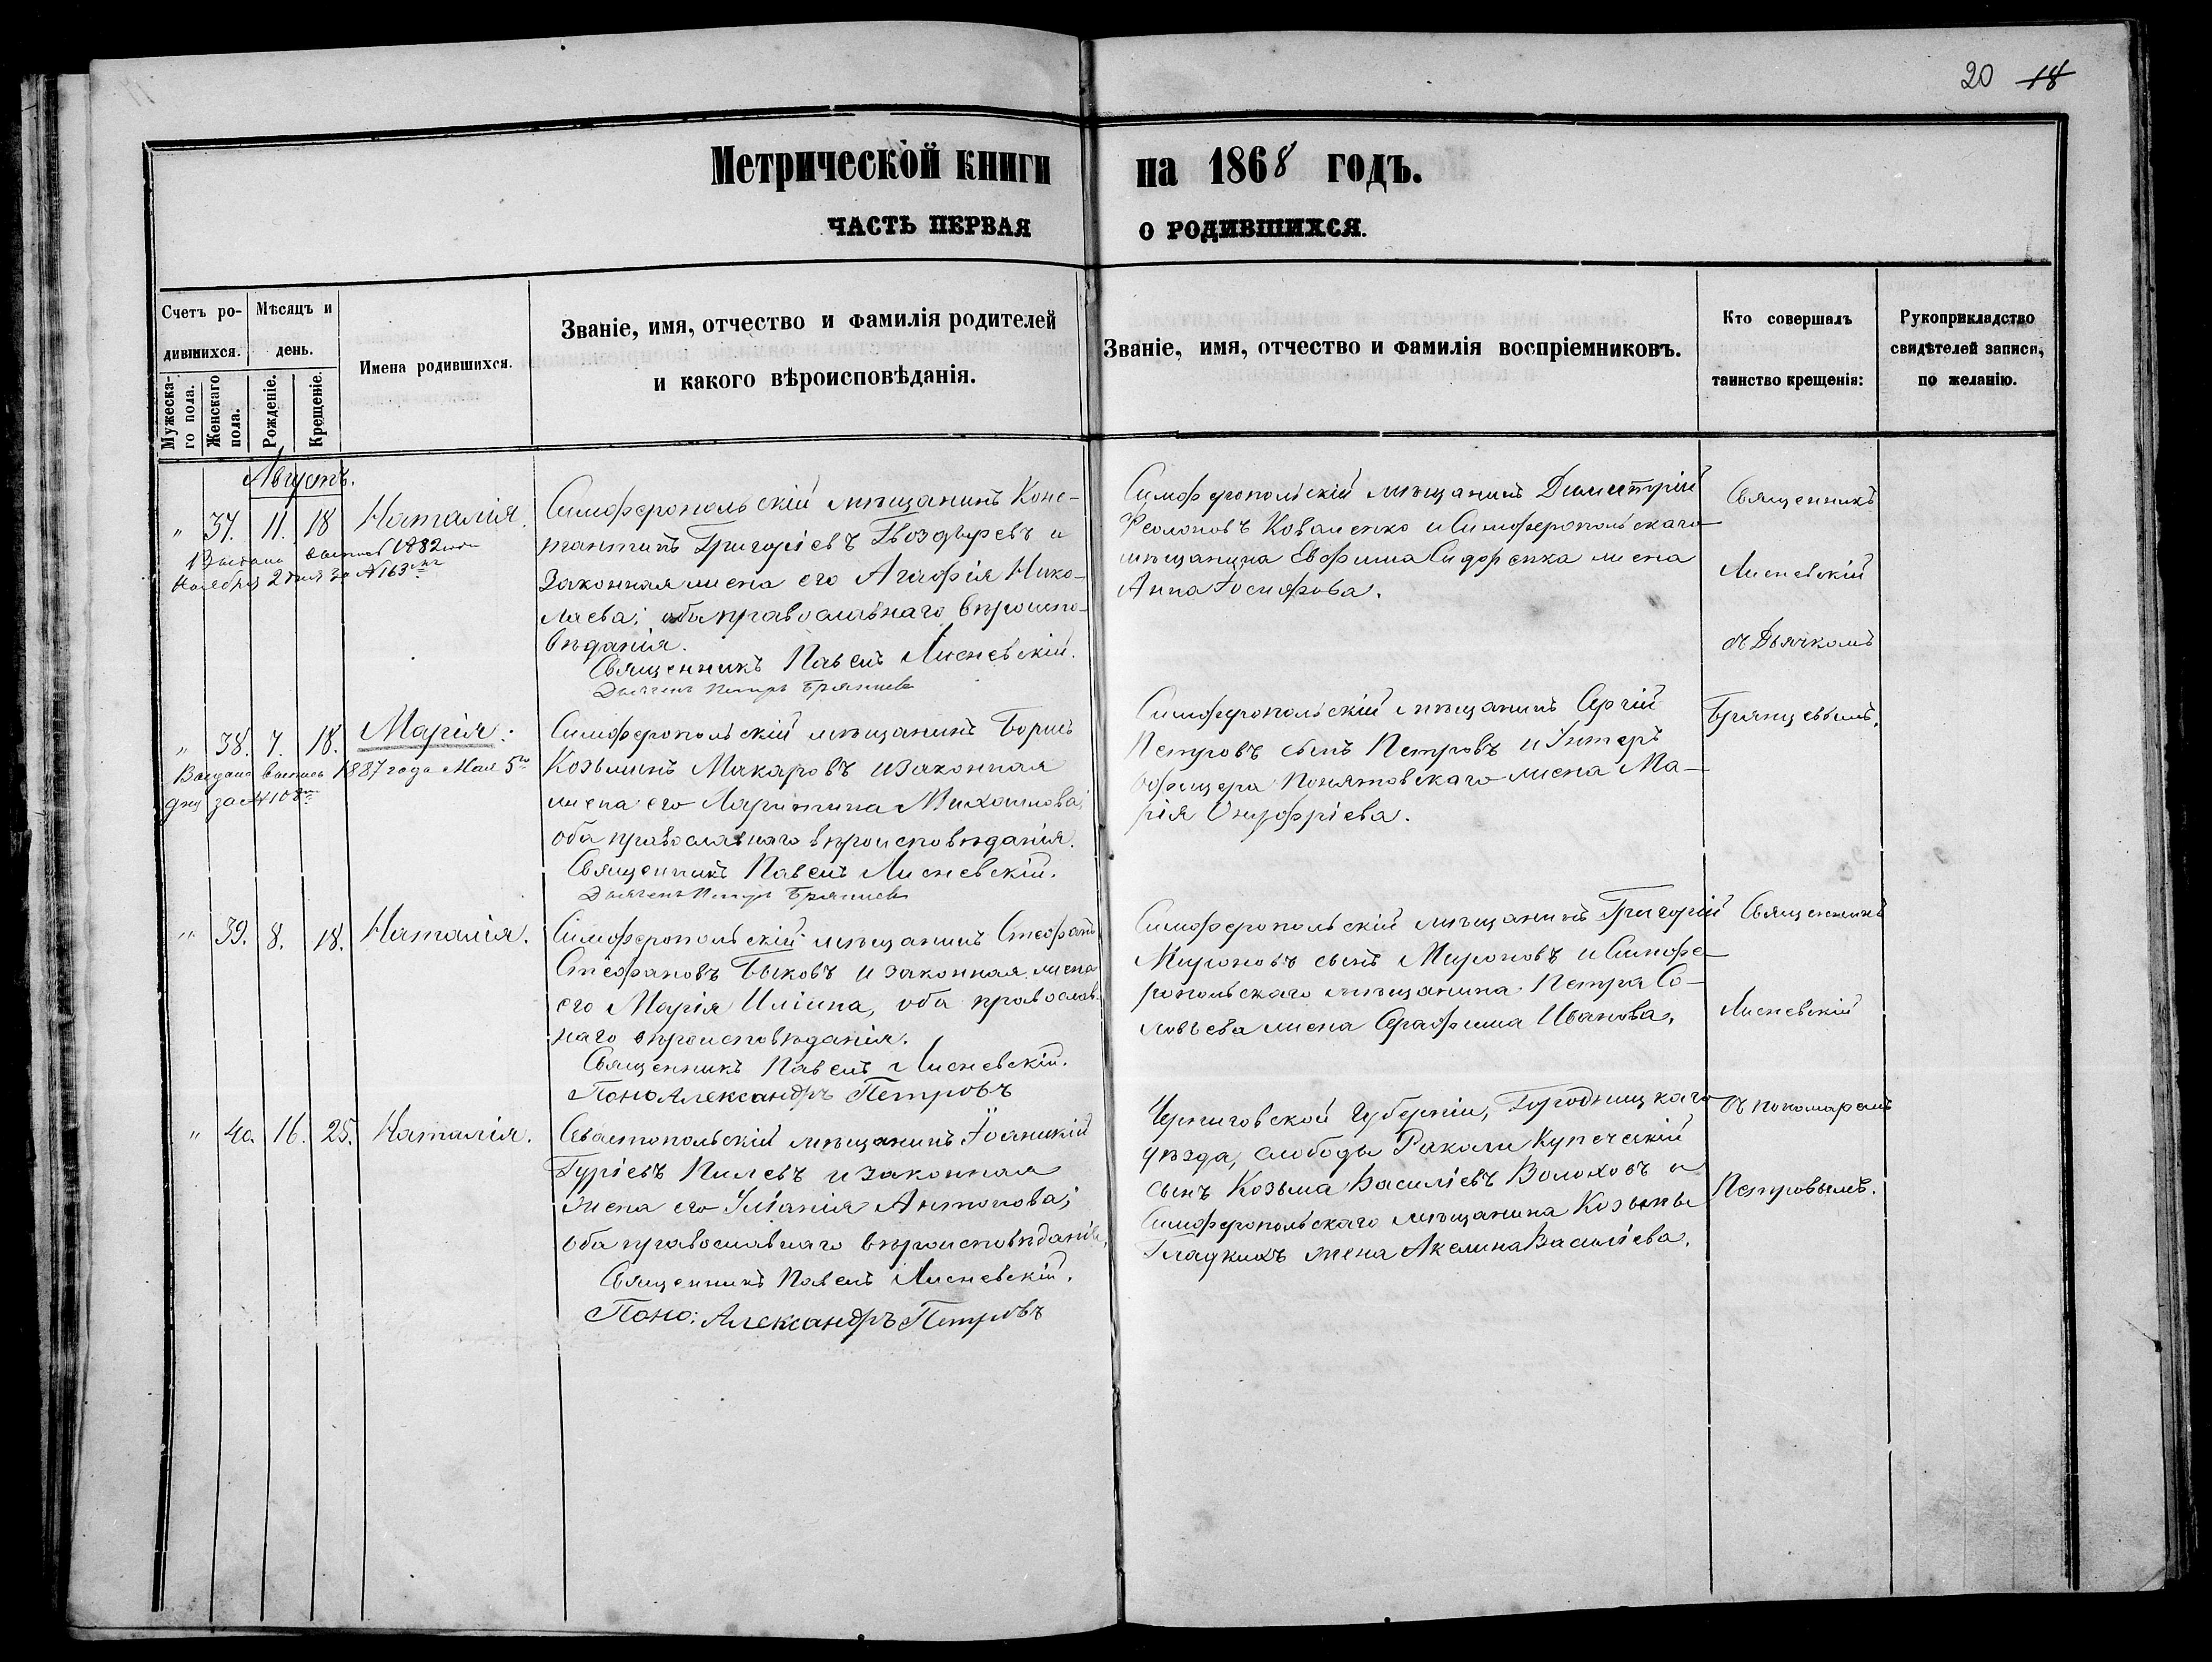 20 18
Метрической книги на 1868 годъ.
ЧАСТЬ ПЕРВАЯ О РОДИВШИХСЯ.
Счетъ ро-
дившихся.
Мужеска-
го пола.
Женскаго
пола.
Мѣсяцъ и
день.
Рожденіе.
Крещеніе.
Имена родившихся.
Званіе, имя, отчество и фамилія родителей
и какого вѣроисповѣданія.
Званіе, имя, отчество и фамилія воспріемниковъ.
Кто совершалъ
таинство крещенія:
Рукоприкладство
свидѣтелей записи,
по желанію.
Августъ.
" 37. 11. 18 Наталія.
Выдана выпись 1882 года
Ноября 2 дня за №163
Симферопольскій мѣщанинъ Конс-
тантинъ Григоріевъ Гвоздыревъ и
законная жена его Агафія Нико-
лаева; оба православнаго вѣроиспо-
вѣданія.
Священникъ Павелъ Лисневскій.
Дьячекъ Петръ Брянцевъ
Симферопольскій мѣщанинъ Димитрій
Коваленко и Симферопольскаго
мѣщанина Евфима Сидоренка жена
Анна Іосифова.
Священникъ
Лисневскій
съ Дьячкомъ
Брянцевымъ.
" 38. 7. 18. Марія.
Выдана выпись 1887 года Мая 5го
дня за №108
Симферопольскій мѣщанинъ Борисъ
Козьминъ Макаровъ и законная
жена его Михаилова;
оба православнаго вѣроисповѣданія.
Священникъ Павелъ Лисневскій.
Дьячекъ Петръ Брянцевъ
Симферопольскій мѣщанинъ Сергій
Петровъ сынъ Петровъ и Унтеръ
Офицера Понятовскаго жена Ма-
рія Онуфріева.
" 39. 8. 18. Наталія.
Симферопольскій мѣщанинъ Стефанъ
Стефановъ Быковъ и законная жена
его Марія Иліина, оба православ-
наго вѣроисповѣданія.
Священникъ Павелъ Лисневскій.
Поно Александръ Петровъ
Симферопольскій мѣщанинъ Григорій
Мироновъ сынъ Мироновъ и Симфе-
ропольскаго мѣщанина Петра Со-
ловьева жена Серафима Иванова.
Священникъ
Лисневскій
съ пономаремъ
Петровымъ.
" 40. 16. 25. Наталія.
Севастопольскій мѣщанинъ Іоаникій
Гуріевъ Пилевъ и законная
жена его Уліанія Антонова;
оба православнаго вѣроисповѣданія.
Священникъ Павелъ Лисневскій.
Поно: Александръ Петровъ
Черниговской Губерніи, Городницкаго
уѣзда, слободы Купеческій
сынъ Козьма Василіевъ Волоховъ и
Симферопольскаго мѣщанина Козьмы
Гладкихъ жена Акелина Василіева.